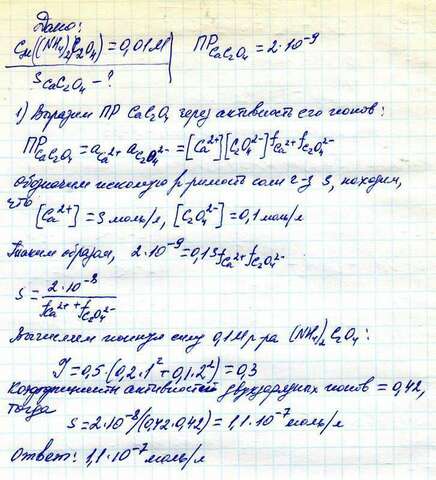 Дано:
C_M((NH₄)₂C₂O₄) = 0,01M
ПР_CaC₂O₄ = 2·10⁻⁹
S_CaC₂O₄ - ?
1) Выразим ПР CaC₂O₄ через активность его ионов:
ПР_CaC₂O₄ = a_Ca²⁺ a_C₂O₄²⁻ = [Ca²⁺][C₂O₄²⁻] f_Ca²⁺ f_C₂O₄²⁻
обозначим искомую р-римость соли ч-з S, находим,
что [Ca²⁺] = S моль/л, [C₂O₄²⁻] = 0,1 моль/л
Таким образом, 2·10⁻⁹ = 0,1S f_Ca²⁺ f_C₂O₄²⁻
S = 2·10⁻⁸ / f_Ca²⁺ + f_C₂O₄²⁻
Вычисляем ионную силу 0,1М р-ра (NH₄)₂C₂O₄:
J = 0,5·(0,2·1² + 0,1·2²) = 0,3
Коэффициенты активностей двухзарядных ионов = 0,42,
тогда
S = 2·10⁻⁸/(0,42·0,42) = 1,1·10⁻⁷ моль/л
Ответ: 1,1·10⁻⁷ моль/л